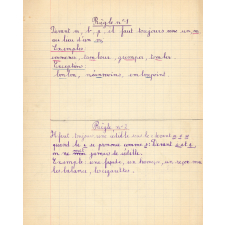 Règle n°1
Devant m, b, p, il faut toujours mettre un m
au lieu d'un n.
Exemples
emmener, tambour, grimper, tomber.
Exceptions
bonbon, néanmoins, embonpoint.
Règle n°2
Il faut toujours une cédille sous le c devant a o u
quand le c se prononce comme s. Devant e et i
on ne met jamais de cédille.
Exemple : une façade, un hameçon, un reçu,